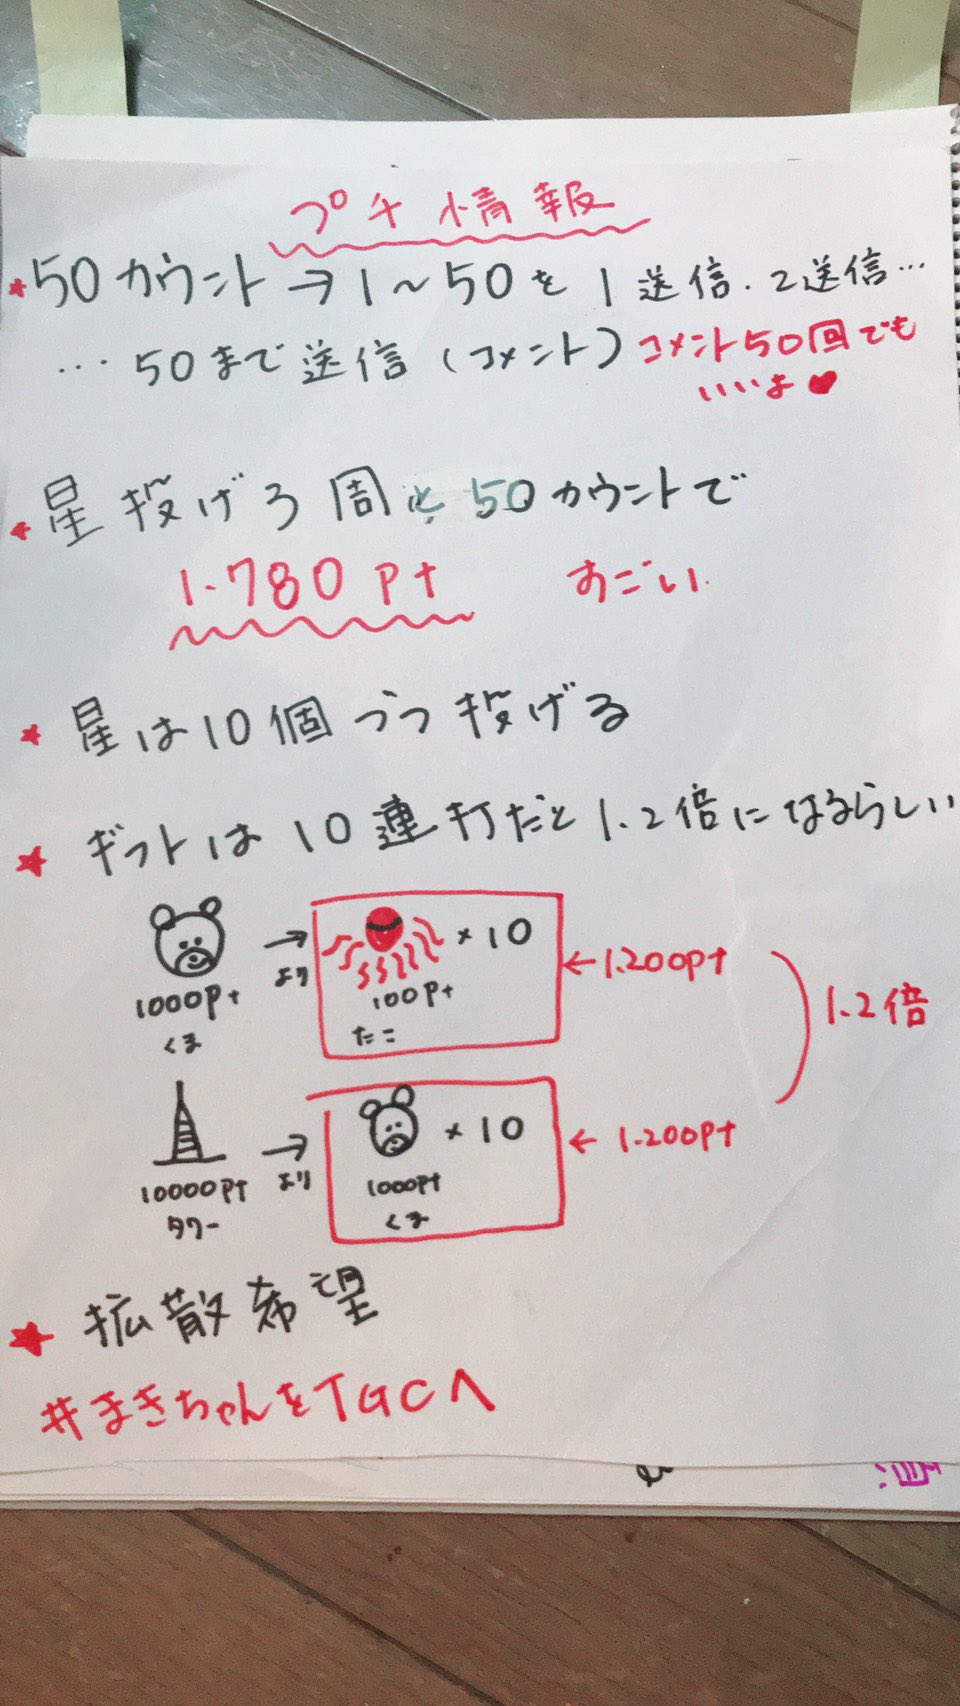 プチ情報
★50カウント→1〜50を1送信.2送信…
…50まで送信(コメント)コメント50回でも
いいよ♥
★星投げ3周と50カウントで
1.780pt すごい.
★星は10個づつ投げる
★ギフトは10連打だと1.2倍になるらしい
→ ×10
1000pt より 100pt ←1.200pt
くま たこ
1.2倍
→ ×10 ←1.200pt
10000pt より 1000pt
タワー くま
★拡散希望
#まきちゃんをTGCへ